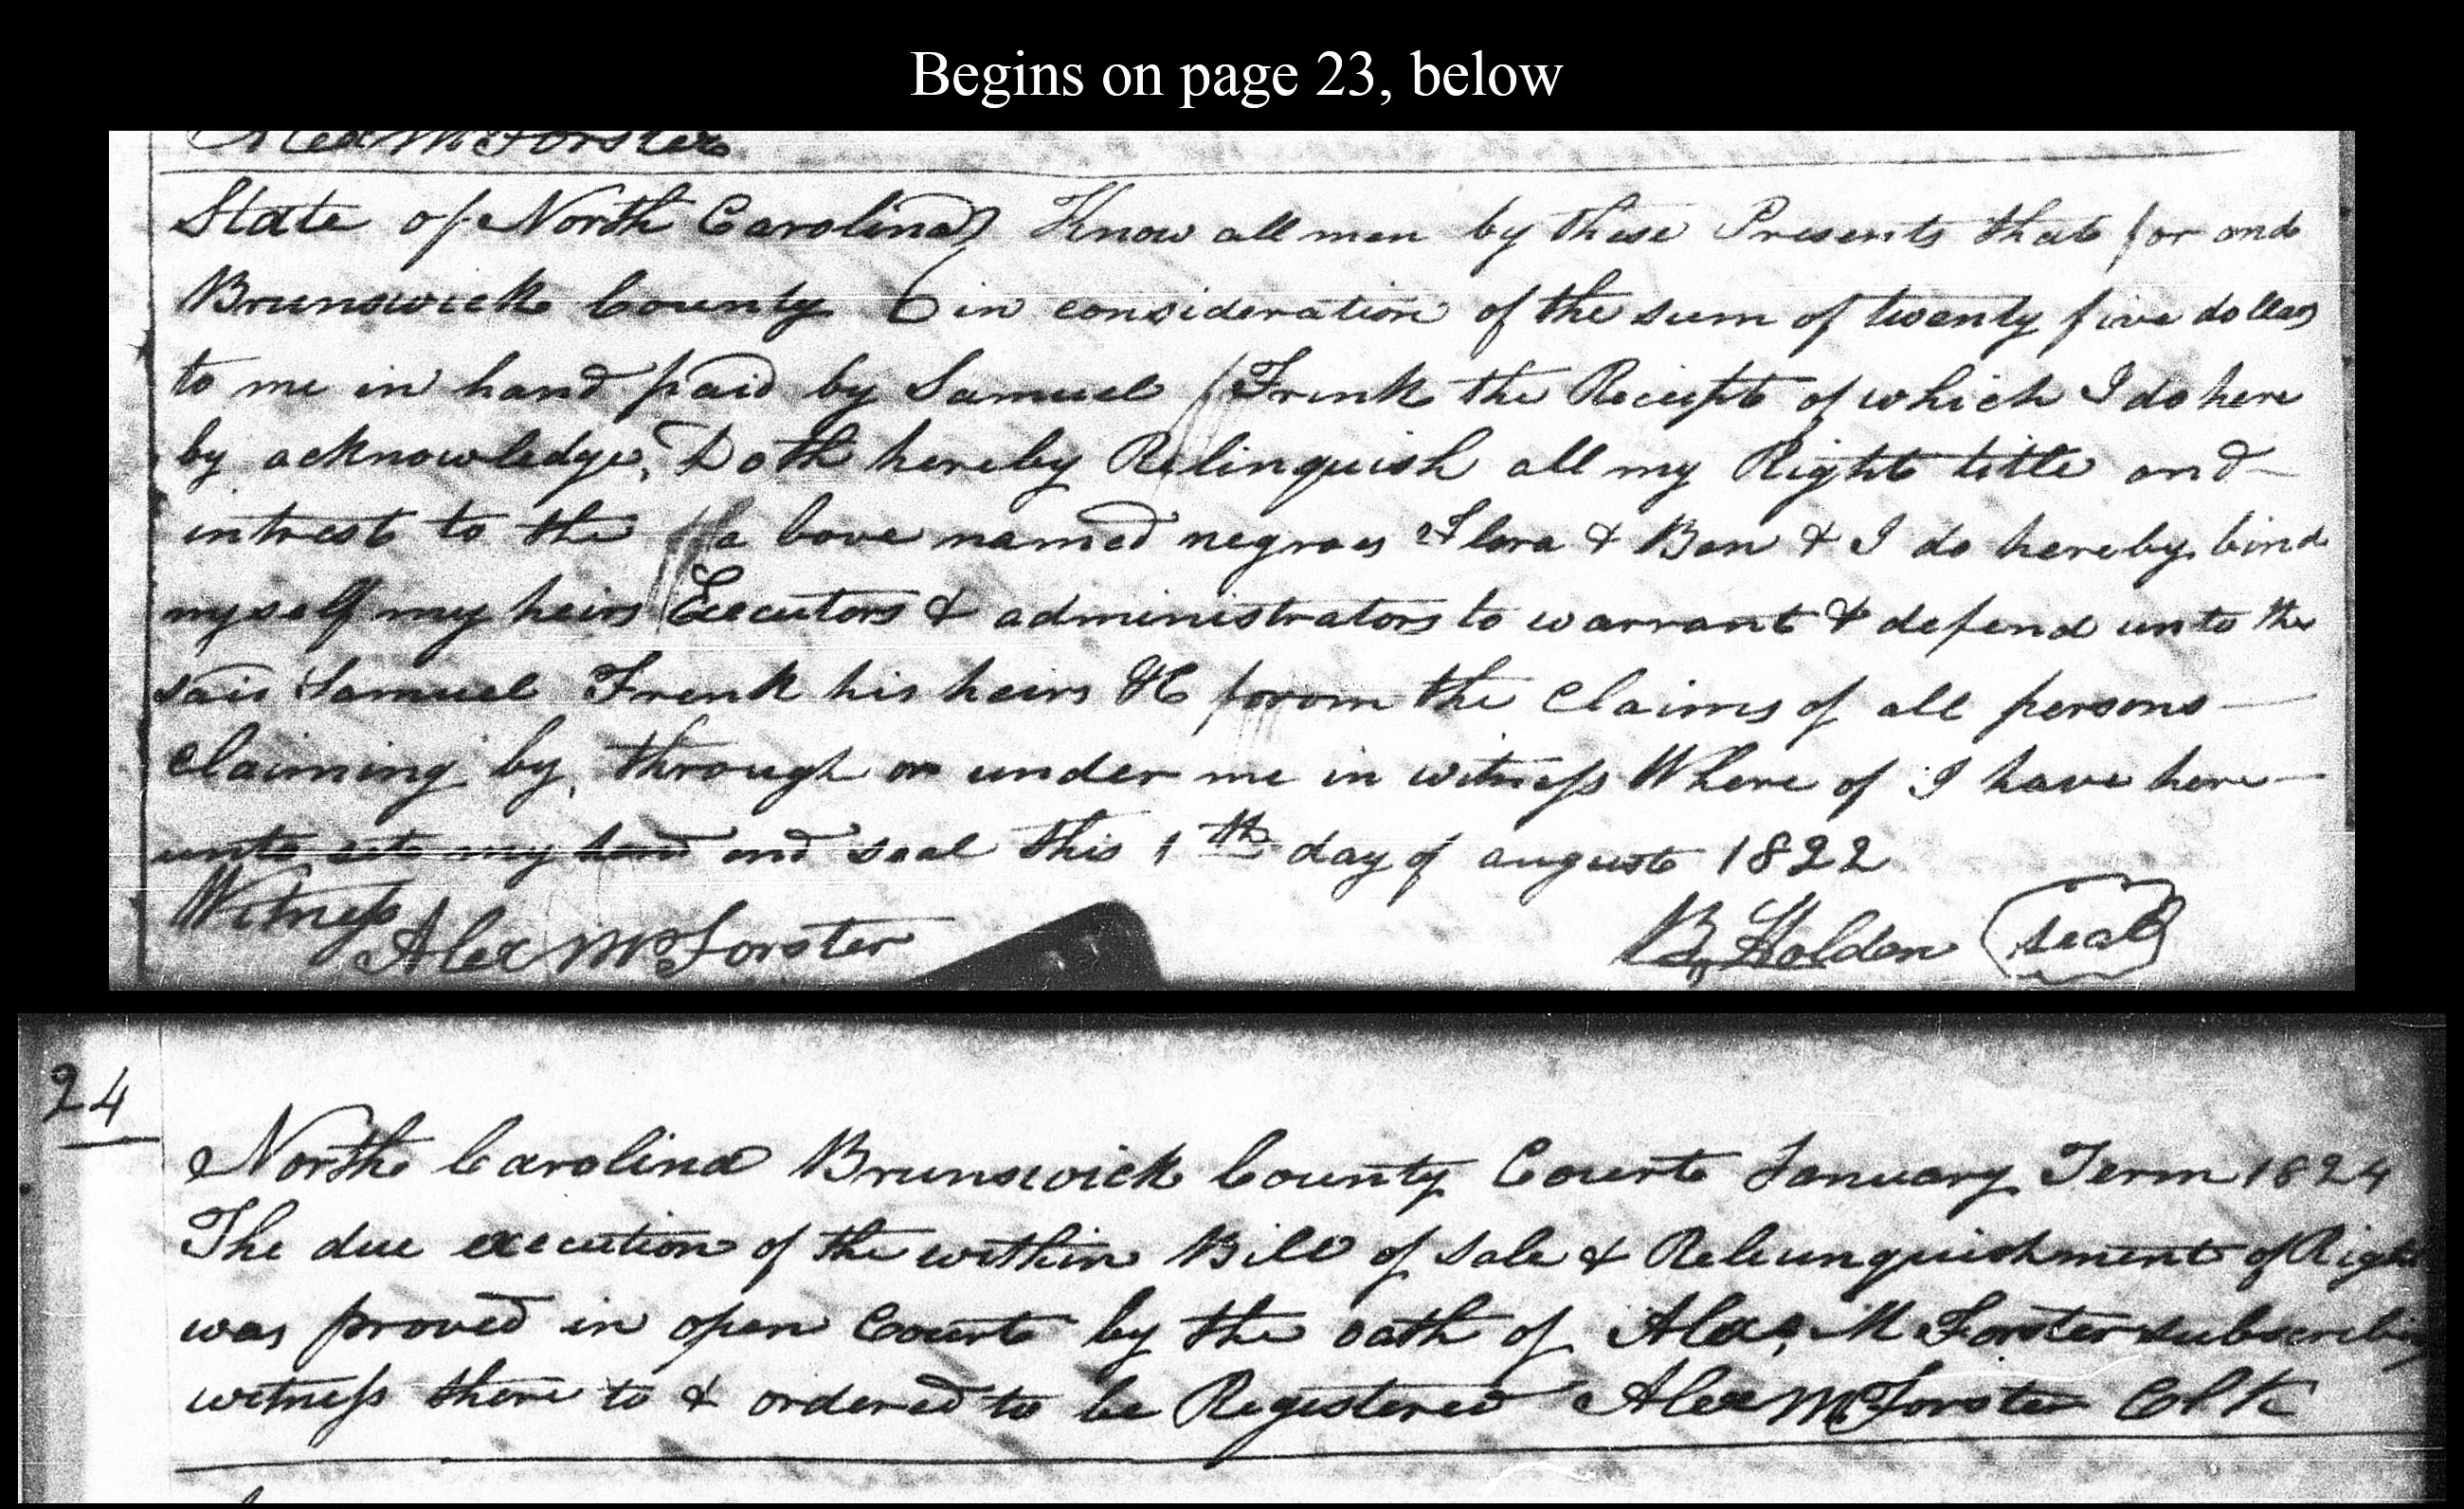 Begins on page 23, below
Alex McForster
State of North Carolina } Know all men by these Presents that for and
Brunswick County } in consideration of the sum of twenty five dollars
to me in hand paid by Samuel Frink the Receipt of which I do here
by acknowledge, Doth hereby Relinquish all my Right title and
intrest to the a bove named negroes Flora & Ben & I do hereby bind
myself my heirs Executors & administrators to warrant & defend unto the
said Samuel Frink his heirs &C forom the Claims of all persons
Claiming by, through or under me in witness Where of I have here
unto set my hand and seal this 1th day of august 1822
Witness
Alex McForster B, Holden (seal)
24
North Carolina Brunswick County Court January Term 1824
The due execution of the within Bill of Sale & Releunquishment of Right
was proved in open Court by the oath of Alex, M Forster subscribing
witness there to & ordered to be Registered Alex McForster Cl k